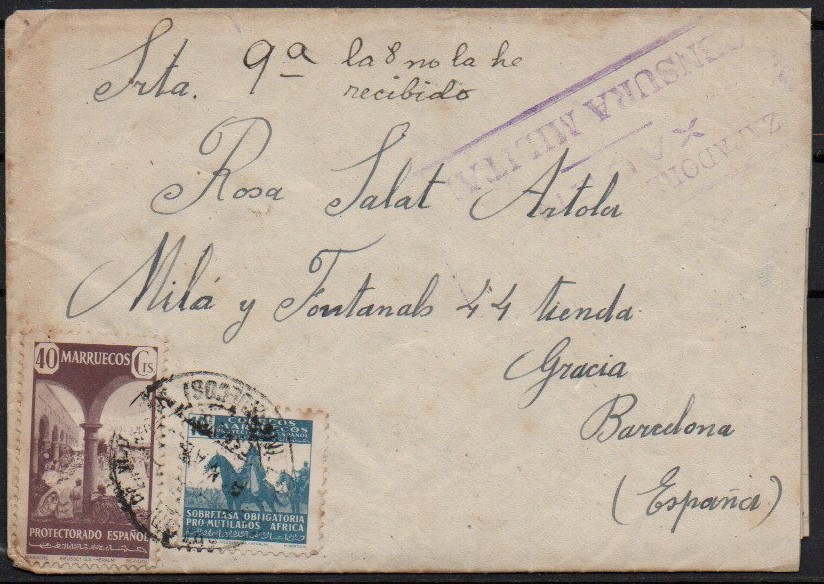 9ª la 8 no la he
recibido
Srta.
Rosa Salat Artola
Milá y Fontanals 44 tienda
Gracia
Barcelona
(España)
CENSURA MILITAR
40 MARRUECOS Cts.
PROTECTORADO ESPAÑOL
CORREOS
MARRUECOS
ESPAÑOL
SOBRETASA OBLIGATORIA
PRO MUTILADOS AFRICA